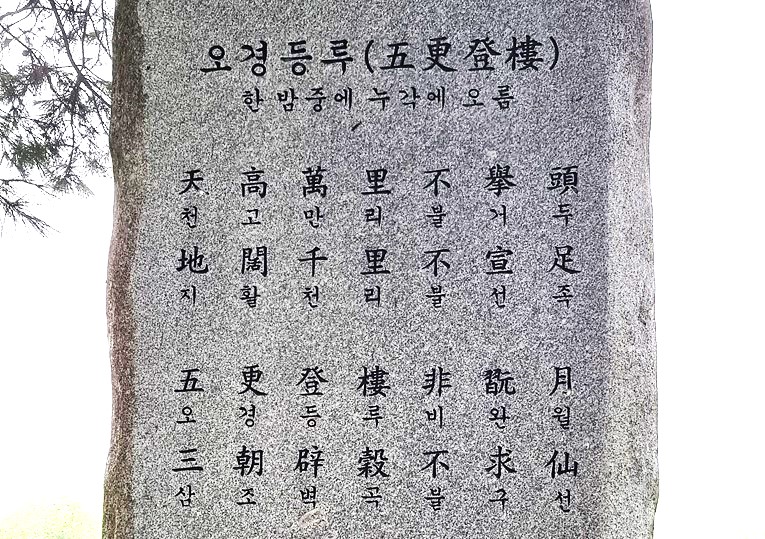 오경등루(五更登樓)
한밤중에 누각에 오름
天高萬里不擧頭
천고만리불거두
地闊千里不宣足
지활천리불선족
五更登樓非翫月
오경등루비완월
三朝辟穀不求仙
삼조벽곡불구선